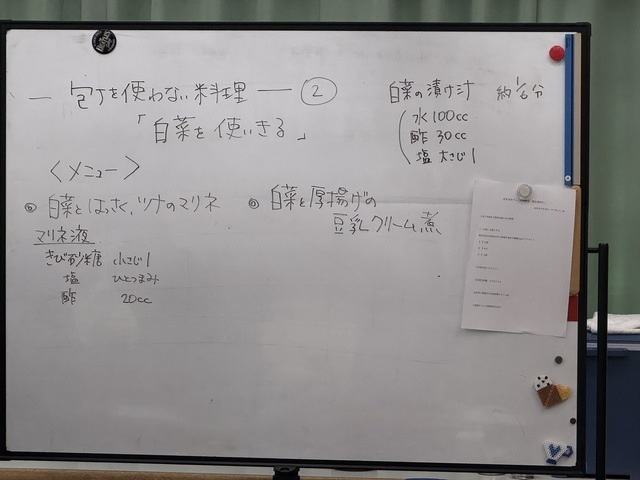 ― 包丁を使わない料理 ― ②
「白菜を使いきる」
<メニュー>
◎ 白菜とはっさく、ツナのマリネ
マリネ液
きび砂糖 小さじ1
塩 ひとつまみ
酢 20cc
◎ 白菜と厚揚げの
豆乳クリーム煮
白菜の漬け汁 約1/6分
水100cc
酢 30cc
塩 大さじ1